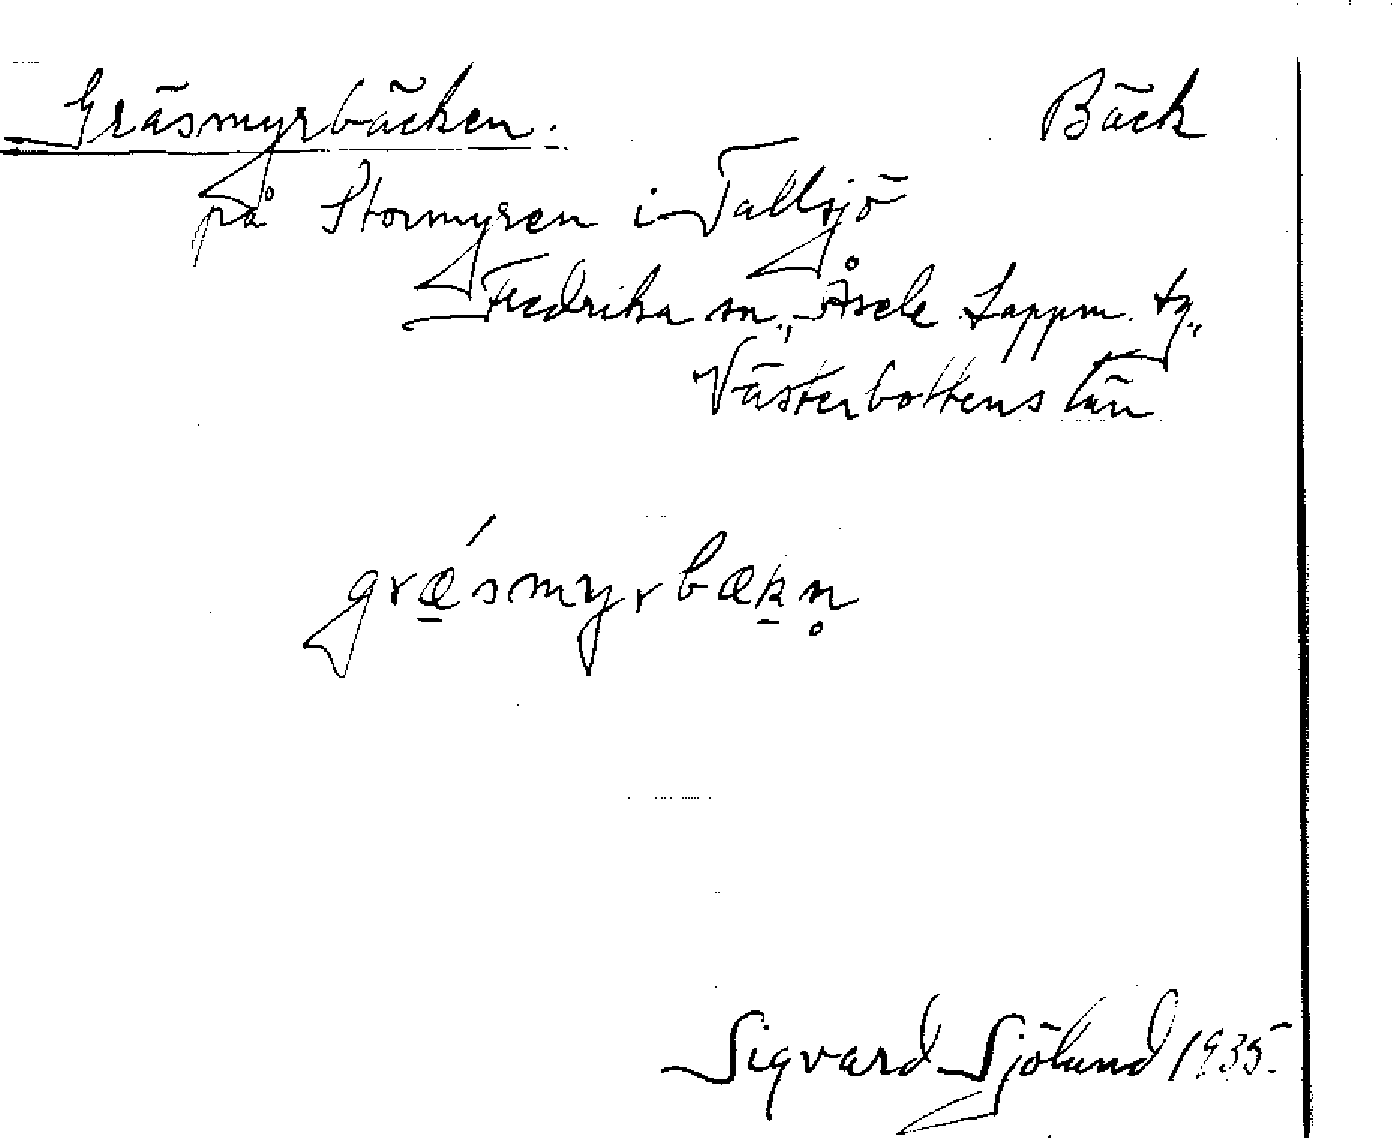 Gräsmyrbäcken. Bäck
på Stormyren i Tallsjö
Fredrika sn„ Åsele Lappm. tg„
Västerbottens län
grǽ̲smyrbæk̲n̥
Sigvard Sjölund 1935